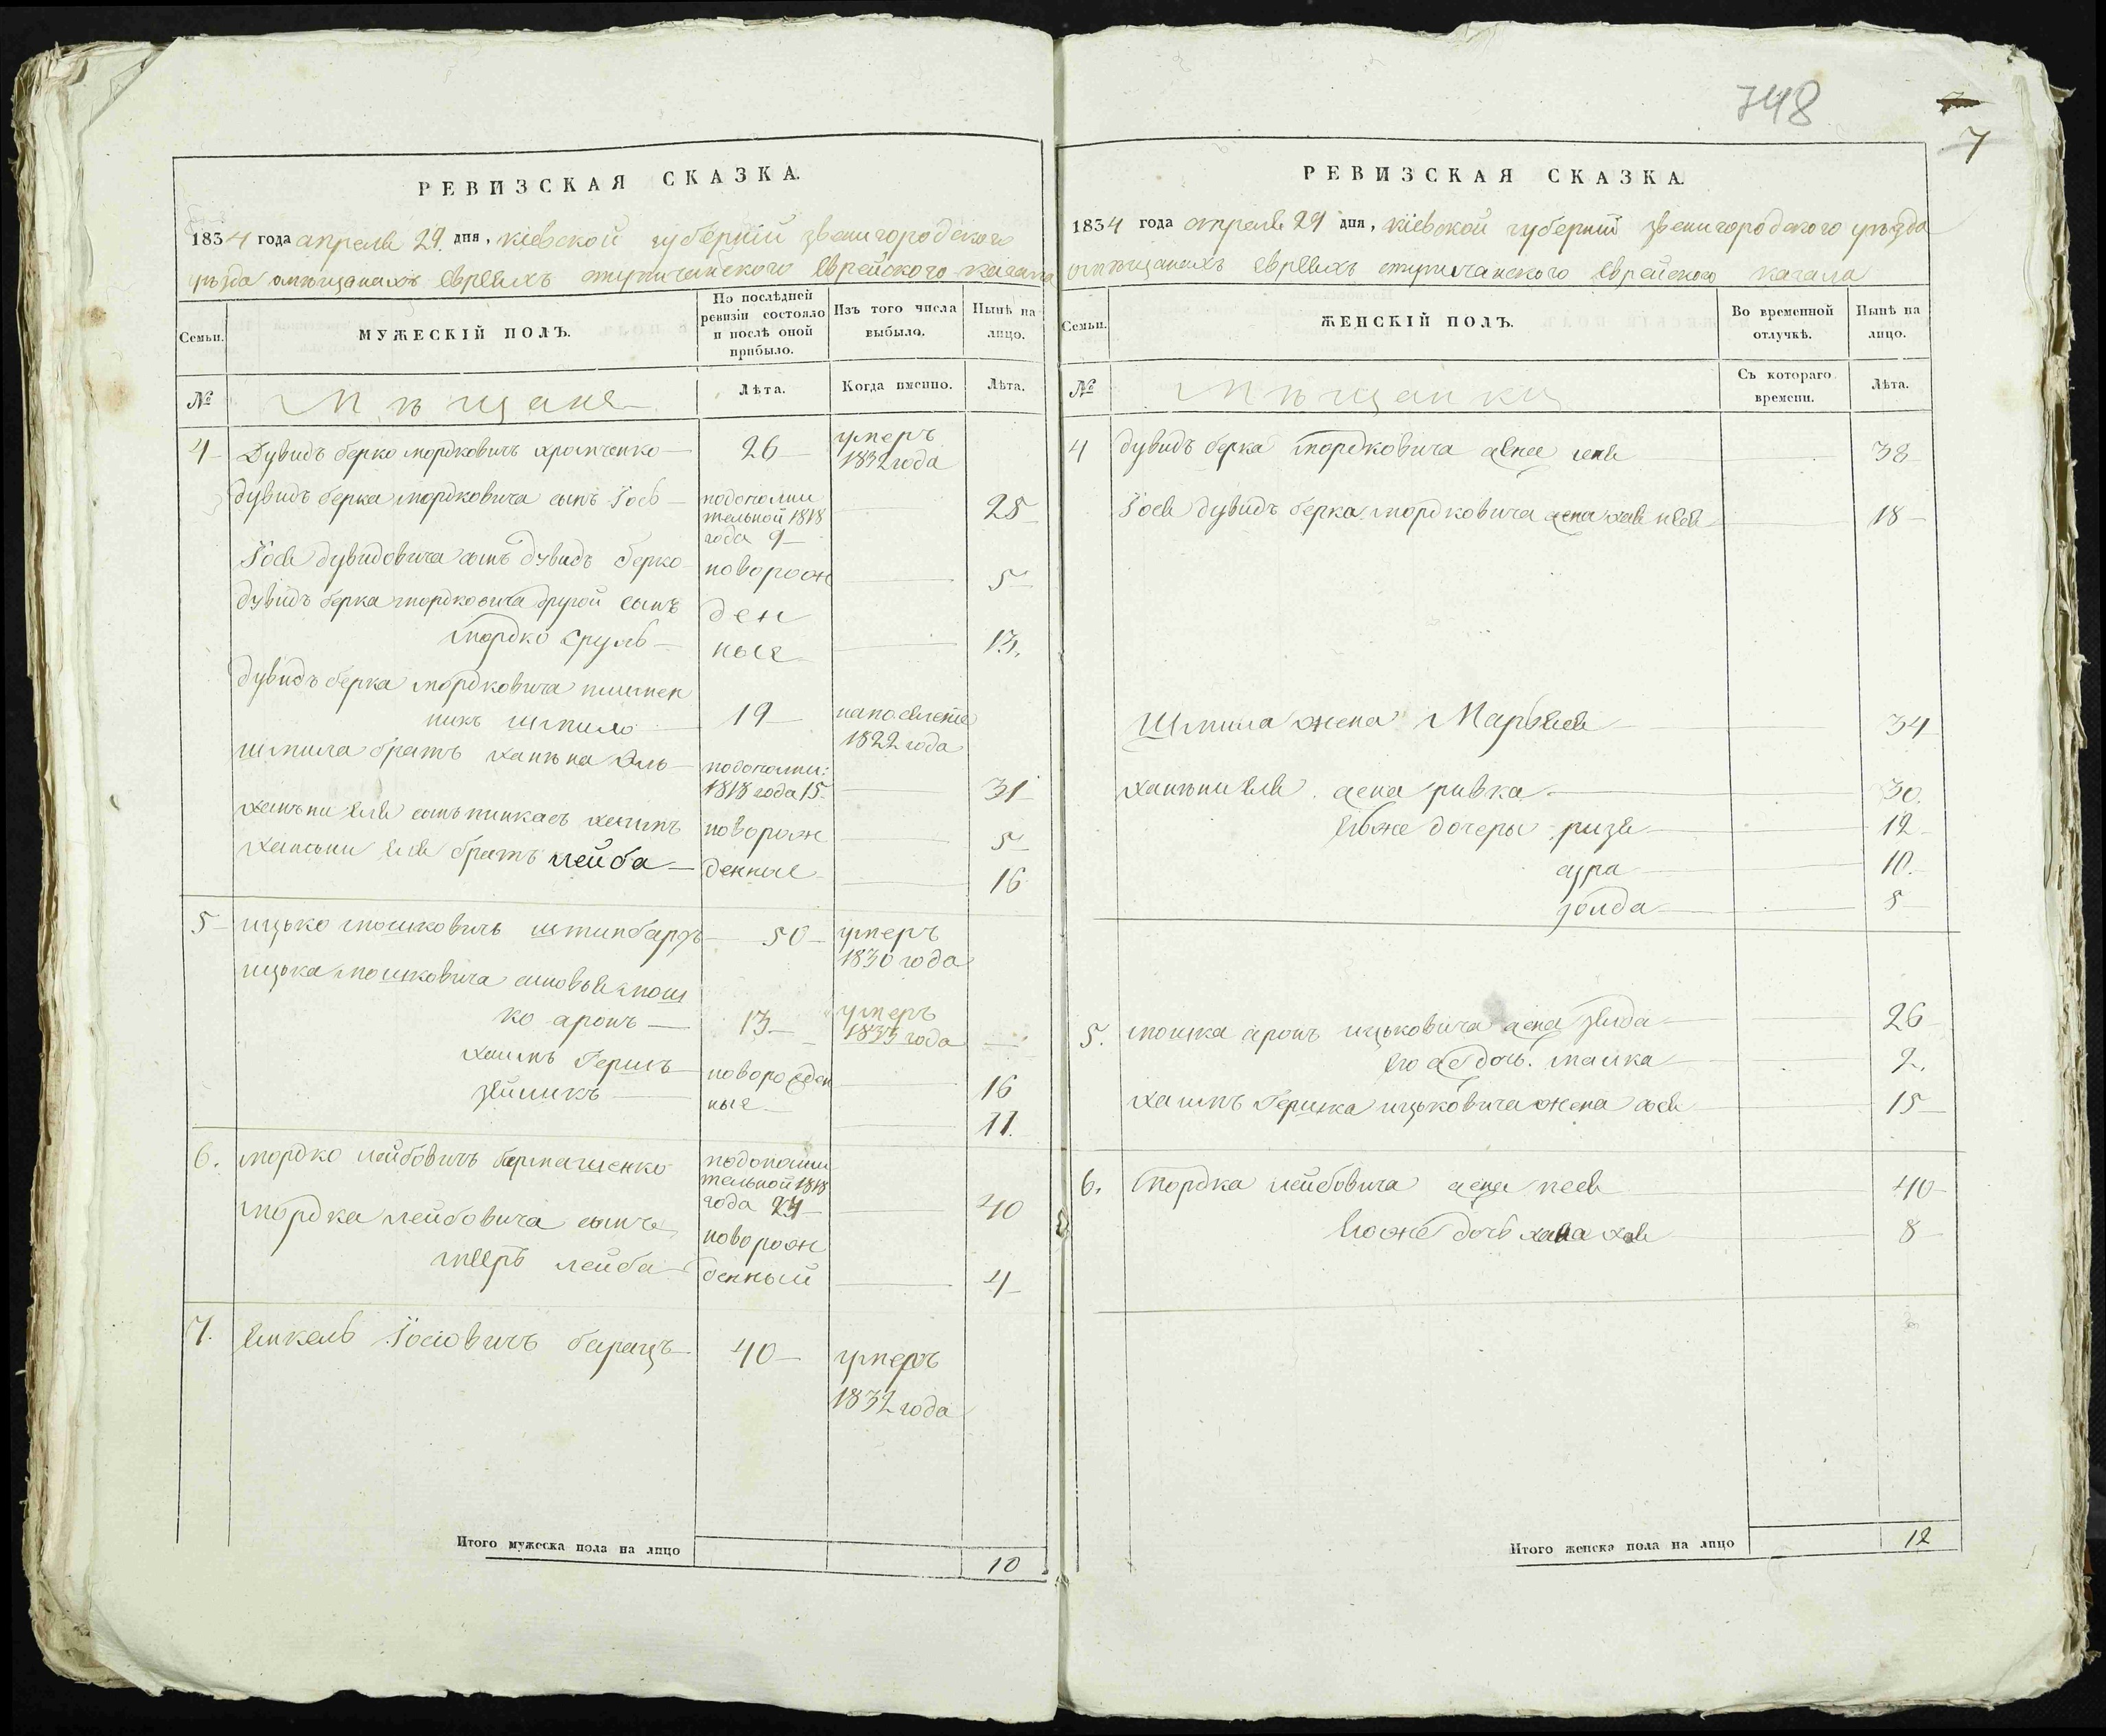 748
7
РЕВИЗСКАЯ СКАЗКА.
1834 года апреля 29 дня, кіевской губерніи звенигородского
уѣзда омѣщанахъ евреяхъ еврейского кагала
Семьи. МУЖЕСКІЙ ПОЛЪ. По послѣдней ревизіи состояло и послѣ оной прибыло. Изъ того числа выбыло. Нынѣ на лицо.
№ Мѣщане Лѣта. Когда именно. Лѣта.
4 Дувидъ берко мордковичъ хромченко 26 умеръ 1832 года
дувидъ берка мордковича сынъ Іось подополнительной 1818 года 9 25
Іося дувидовича сынъ дувидъ берко новорож 5
дувидъ берка мордковича другой сынъ ден
мордко сруль ные 13
дувидъ берка мордковича племен
никъ шмило 19 1822 года
шмила братъ ханѣна эль подополни: 1818 года 15 31
ханѣни еля сынъ пинкасъ хаимъ новорож 5
ханѣни еля братъ лейба денные 16
5 ицько мошковичъ 50 умеръ 1830 года
ицька мошковича сыновья мош
ко аронъ 13 умеръ 1833 года
хаимъ Гершъ новорожден 16
зейликъ ные 11
6. мордко лейбовичъ подополнительной 1818 года 24 40
мордка лейбовича сынъ новорож
мееръ лейба денный 4
7. Янкель Іосіовичъ барацъ 40 умеръ
1832 года
Итого мужеска пола на лицо 10
РЕВИЗСКАЯ СКАЗКА.
1834 года апреля 29 дня, кіевской губерніи звенигородского уѣзда
омѣщанахъ евреяхъ еврейского кагала
Семьи. ЖЕНСКІЙ ПОЛЪ. Во временной отлучкѣ. Нынѣ на лицо.
№ Мѣщанки Съ котораго времени. Лѣта.
4 дувидъ берка мордковича жена 38
Іося дувидъ берка мордковича жена хая 18
Шмила жена 34
ханѣни еля жена ривка 30
Егоже дочеры ризя 12
10.
голда 5
5. мошка аронъ ицьковича жена зелда 26
его же дочь. 2.
хаимъ Гершка ицьковича жена 15
6. мордка лейбовича жена песя 40
Егоже дочь хана хая 8
Итого женска пола на лицо 12